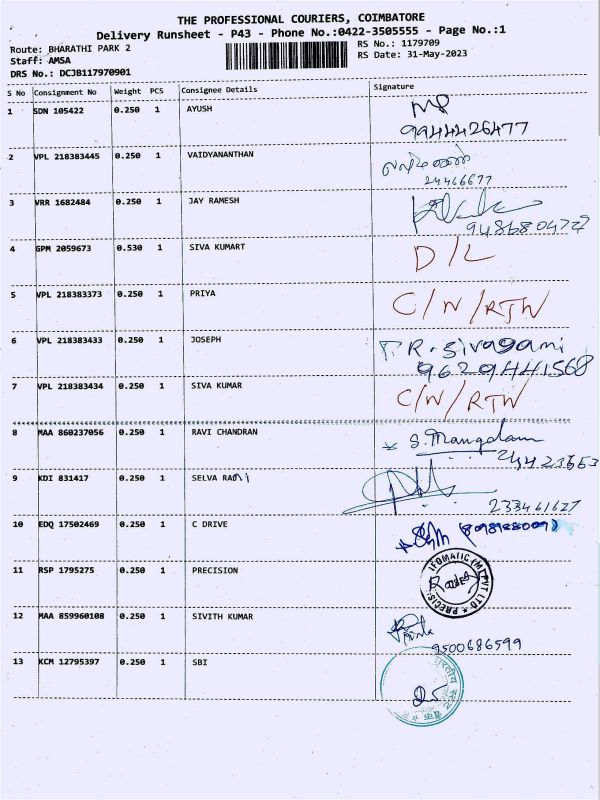 THE PROFESSIONAL COURIERS, COIMBATORE
Delivery Runsheet - P43 - Phone No.:0422-3505555 - Page No.:1
Route: BHARATHI PARK 2
RS No.: 1179709
Staff: AMSA
RS Date: 31-May-2023
DRS No.: DCJB117970901
S No Consignment No Weight PCS Consignee Details Signature
1 SDN 105422 0.250 1 AYUSH
9944426477
2 VPL 218383445 0.250 1 VAIDYANANTHAN
24466677
3 VRR 1682484 0.250 1 JAY RAMESH
4 GPM 2059673 0.530 1 SIVA KUMART D/L
5 VPL 218383373 0.250 1 PRIYA C/N/RTN
6 VPL 218383433 0.250 1 JOSEPH T. R. Sivagami
9629441568
7 VPL 218383434 0.250 1 SIVA KUMAR C/N/RTN
8 MAA 860237056 0.250 1 RAVI CHANDRAN S. Mangalam
9 KDI 831417 0.250 1 SELVA RANI
233461627
10 EDQ 17502469 0.250 1 C DRIVE
11 RSP 1795275 0.250 1 PRECISION
12 MAA 859960108 0.250 1 SIVITH KUMAR
9500686599
13 KCM 12795397 0.250 1 SBI